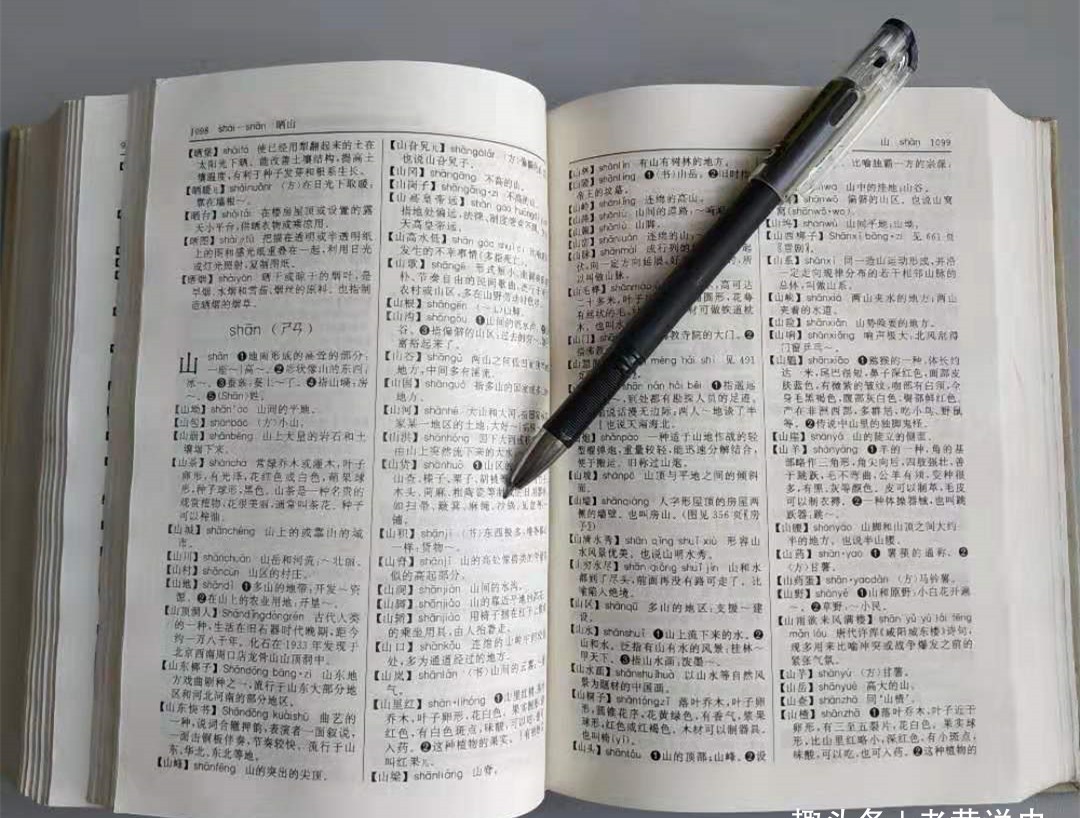 1098 shài－shān 晒山
【晒垡】shàifá 使已经用犁翻起来的土在
太阳光下晒，能改善土壤结构，提高土
壤温度，有利于种子发芽和根系生长。
【晒暖儿】shàinuǎnr 〈方〉在日光下取暖，
常在墙根～。
【晒台】shàitái 在楼房屋顶或设置的露
天小平台，供晒衣物或乘凉用。
【晒图】shài∥tú 把描在透明或半透明纸
上的图和感光纸重叠在一起，利用日光
或灯光照射，复制图纸。
【晒烟】shàiyān 晒干或晾干的烟叶，是
旱烟、水烟和雪茄、烟丝的原料。也指制
造晒烟的烟草。
shān（ㄕㄢ）
山 shān ❶地面形成的高耸的部分：
一座～｜高～。❷形状像山的东西：
冰～。❸蚕蔟：蚕上～了。❹指山墙：房
～。❺(Shān)姓。
【山坳】shān'ào 山间的平地。
【山包】shānbāo 〈方〉小山。
【山崩】shānbēng 山上大量的岩石和土
壤塌下来。
【山茶】shānchá 常绿乔木或灌木，叶子
卵形，有光泽，花红色或白色，蒴果球
形，种子球形，黑色。山茶是一种名贵的
观赏植物，花很美丽，通常叫茶花。种子
可以榨油。
【山城】shānchéng 山上的或靠山的城
市。
【山川】shānchuān 山岳和河流：～壮丽。
【山村】shāncūn 山区的村庄。
【山地】shāndì ❶多山的地带：开发～资
源。❷在山上的农业用地：开垦～。
【山顶洞人】Shāndǐngdòngrén 古代人类
的一种，生活在旧石器时代晚期，距今
约一万八千年。化石在1933年发现于
北京西南周口店龙骨山山顶洞中。
【山东梆子】Shāndōng bāng·zi 山东地
方戏曲剧种之一，流行于山东大部分地
区和河北河南的部分地区。
【山东快书】Shāndōng kuàishū 曲艺的
一种，说词合辙押韵，表演者一面叙说，
一面击铜板伴奏，节奏较快。流行于山
东、华北、东北等地。
【山峰】shānfēng 山的突出的尖顶。
【山旮旯儿】shāngālár 〈方〉
也说山旮旯子。
【山冈】shāngāng 不高的山。
【山岗子】shāngǎng·zi 不高的山。
【山高皇帝远】shān gāo huángdì
指地处偏远，法律、制度
天高皇帝远。
【山高水低】shān gāo shuǐ dī
发生的不幸事情（多指死亡）。
【山歌】shāngē 形式短小、曲调
朴、节奏自由的民间歌曲，
农村或山区，多在山野劳动时
【山根】shāngēn
【山沟】shāngōu ❶山间的
谷。❸指偏僻的山区：过去的
富裕起来了。
【山谷】shāngǔ 两山之间
地方，中间多有溪流。
【山国】shānguó 指多山的国家或
地方。
【山河】shānhé 大山和大河，指
家某一地区的土地：大好～｜
【山洪】shānhóng 因下大雨或
由山上突然流下来的大水
【山货】shānhuò ❶山区的
山查、榛子、栗子、胡桃
木头、荷麻、粗陶瓷等
如扫帚、簸箕、麻绳、沙锅、瓦盆等
铺。
【山积】shānjī 〈书〉东西极多，堆得像山
一样：货物～。
【山脊】shānjǐ 山的高处像兽类的脊梁骨
似的高起部分。
【山涧】shānjiàn 山间的水沟。
【山脚】shānjiǎo 山的靠近平地的部分。
【山轿】shānjiào
的乘坐用具，由人抬着走。
【山口】shānkǒu 连绵的山岭中间
处，多为通道经过的地方。
【山岚】shānlán 〈书〉山间的云雾：
气。
【山里红】shān·lǐhóng ❶
乔木，叶子卵形，花白色，果实
红色，有白色斑点，味酸，可以吃，
入药。❷这种植物的果实。
叫红果儿。
【山梁】shānliáng 山脊。
山 shān 1099
【山林】shānlín 有山有树林的地方。
【山陵】shānlíng ❶〈书〉山岳。❷旧时指
帝王的坟墓。
【山岭】shānlǐng 连绵的高山。
【山路】shānlù 山间的道路：～
【山麓】shānlù 山脚。
【山峦】shānluán 连绵的山：
【山脉】shānmài 成行列的
伏，向一定方向延展，
以叫做山脉。
【山毛榉】shānmáo ，高可达
二十多米，叶子 圆形，花萼
有丝状的毛， 材可做铁道枕
木。也叫水
【山门】shān 教寺院的大门。❷
指佛教
méng hǎi shì 见491
shān nán hǎi běi ❶指遥远
～，到处都有勘探人员的足迹。
指说话漫无边际：两人～地谈了半
｜也说天南海北。
shānpào 一种适于山地作战的轻
型榴弹炮，重量较轻，能迅速分解结合，
便于搬运。旧称过山炮。
【山坡】shānpō 山顶与平地之间的倾斜
面。
【山墙】shānqiáng 人字形屋顶的房屋两
侧的墙壁。也叫房山。（图见356页〖房
子〗）
【山清水秀】shān qīng shuǐ xiù 形容山
水风景优美。也说山明水秀。
【山穷水尽】shān qióng shuǐ jìn 山和水
都到了尽头，前面再没有路可走了，比
喻陷入绝境。
【山区】shānqū 多山的地区：支援～建
设。
【山水】shānshuǐ ❶山上流下来的水。❷
山和水，泛指有山有水的风景：桂林～
甲天下。❸指山水画：泼墨～。
【山水画】shānshuǐhuà 以山水等自然风
景为题材的中国画。
【山桐子】shāntóngzǐ 落叶乔木，叶子卵
形，圆锥花序，花黄绿色，有香气，浆果
球形，红色或红褐色。木材可以制器具。
也叫椅(yī)。
【山头】shāntóu ❶山的顶部；山峰。❷设
比喻独霸一方的宗派：
山中的洼地；山谷。
shānwō 偏僻的山区。也说山窝
窝(shānwō·wō)。
【山坞】shānwù 山间平地；山坳。
【山西梆子】Shānxī bāng·zi 见661页
〖晋剧〗。
【山系】shānxì 同一造山运动形成，并沿
一定走向规律分布的若干相邻山脉的
总体，叫做山系。
【山峡】shānxiá 两山夹水的地方；两山
夹着的水道。
【山险】shānxiǎn 山势险要的地方。
【山响】shānxiǎng 响声极大：北风刮得
门窗乒乓～。
【山魈】shānxiāo ❶猕猴的一种，体长约
达一米，尾巴很短，鼻子深红色，面部皮
肤蓝色，有微紫的皱纹，吻部有白须，全
身毛黑褐色，腹部灰白色，臀部鲜红色。
产在非洲西部，多群居，吃小鸟、野鼠
等。❷传说中山里的独脚鬼怪。
【山崖】shānyá 山的陡立的侧面。
【山羊】shānyáng ❶羊的一种，角的基
部略作三角形，角尖向后，四肢强壮，善
于跳跃，毛不弯曲，公羊有须，变种很
多，有黑、灰等颜色。皮可以制革，毛皮
可以制衣褥。❷一种体操器械，也叫跳
跃器、跳～。
【山腰】shānyāo 山脚和山顶之间大约一
半的地方。也说半山腰。
【山药】shān·yao ❶薯蓣的通称。❷
〈方〉甘薯。
【山药蛋】shān·yaodàn 〈方〉马铃薯。
【山野】shānyě ❶山和原野：小白花开遍
～。❷草野：～小民。
【山雨欲来风满楼】shān yǔ yù lái fēng
mǎn lóu 唐代许浑《咸阳城东楼》诗句，
现多用来比喻冲突或战争爆发之前的
紧张气氛。
【山芋】shānyù 〈方〉甘薯。
【山岳】shānyuè 高大的山。
【山查】shānzhā 同“山楂”。
【山楂】shānzhā ❶落叶乔木，叶子近于
卵形，有三至五裂片，花白色。果实球
形，比山里红略小，深红色，有小斑点，
味酸，可以吃，也可入药。❷这种植物的